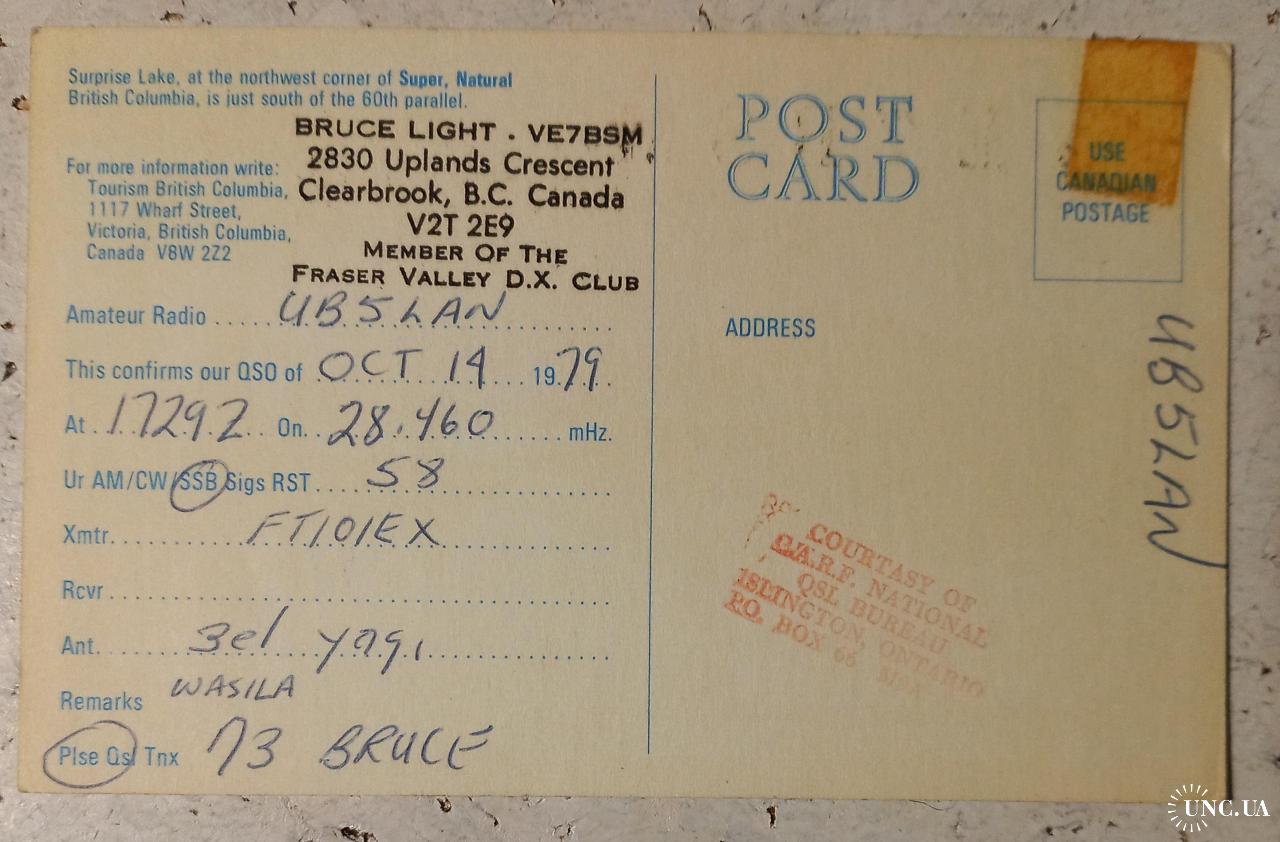 Surprise Lake, at the northwest corner of Super, Natural
British Columbia, is just south of the 60th parallel.
BRUCE LIGHT . VE7BSM
2830 Uplands Crescent
Clearbrook, B.C. Canada
V2T 2E9
MEMBER OF THE
FRASER VALLEY D.X. CLUB
For more information write:
Tourism British Columbia,
1117 Wharf Street,
Victoria, British Columbia,
Canada V8W 2Z2
Amateur Radio UB5LAN
This confirms our QSO of OCT 14 1979
At 1729Z On 28.460 mHz.
Ur AM/CW/SSB Sigs RST 58
Xmtr. FT101EX
Rcvr
Ant. 3el yagi
Remarks WASILA
Plse Qsl Tnx 73 BRUCE
POST
CARD
USE
CANADIAN
POSTAGE
ADDRESS
UB5LAN
COURTASY OF
C.A.R.F. NATIONAL
QSL BUREAU
ISLINGTON, ONTARIO
P.O. BOX 66
UNC.UA